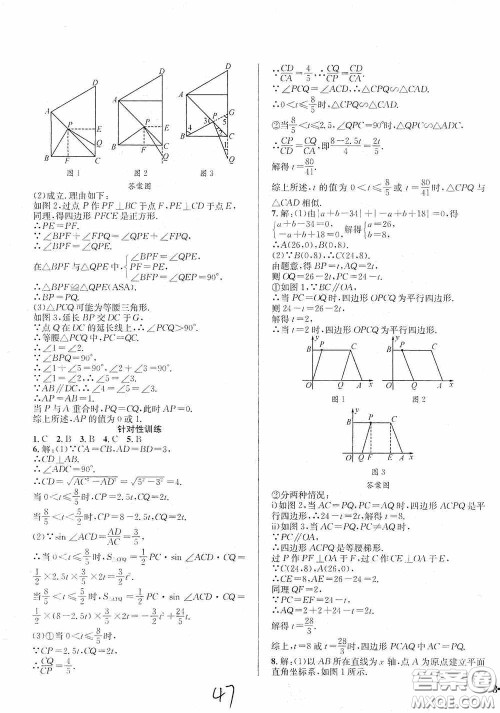 图 1
图 2
图 3
答案图
(2)成立.理由如下:
如图 2,过点 P 作 PF⊥BC 于点 F,PE⊥CD 于点 E,
同理,得四边形 PFCE 是正方形.
∴PE=PF.
∵∠BPF+∠QPF=∠QPE+∠QPF,
∴∠BPF=∠QPE.
在△BPF 与△QPE 中,{∠BPF=∠QPE,
PF=PE,
∠BFP=∠QEP=90°,
∴△BPF≌△QPE(ASA).
∴BP=PQ.
(3)△PCQ 可能为等腰三角形.
如图 3,延长 BP 交 DC 于 G.
∵点 Q 在 DC 的延长线上,∴∠PCQ>90°.
∴等腰△PCQ 中,PC=QC.
∴∠1=∠2.
∵∠BPQ=90°,
∴∠1+∠5=90°,∠2+∠3=90°.
∴∠5=∠3.
∵AB∥DC,∴∠4=∠5.
∴∠4=∠3.∴AP=AB=1.
当 P 与 A 重合时,PQ=CQ,此时 AP=0.
综上所述,AP 的值为 0 或 1.
针对性训练
1.C 2.B 3.B 4.C 5.B
6.解:(1)∵CA=CB,AD=BD=3,
∴CD⊥AB.
∴∠ADC=90°.
∴CD=√AC²−AD²=√5²−3²=4.
当 0<t≤8/5时,CP=2.5t,CQ=2t.
当8/5<t≤2.5 时,CP=8−2.5t,CQ=2t.
(2)∵sin∠ACD=AD/AC=3/5,
∴当 0<t≤8/5时,S△CPQ=1/2PC·sin∠ACD·CQ=
1/2×2.5t×3/5×2t=3/2t².
当8/5<t≤2.5 时,S△CPQ=1/2PC·sin∠ACD·CQ
=1/2×(8−2.5t)×3/5×2t=−3/2t²+24/5t.
(3)①当 0<t≤8/5时,
∵CP=2.5t,CQ=2t,
∴CQ/CP=4/5.
∵CD/CA=4/5,∴CD/CA=CQ/CP.
∵∠PCQ=∠ACD,∴△CPQ∽△CAD.
∴0<t≤8/5时,△CPQ∽△CAD.
②当8/5<t≤2.5,∠QPC=90°时,△CPQ∽△CDA,
∴CP/CD=CQ/CA,即8−2.5t/4=2t/5.
解得 t=80/41.
综上所述,t 的值为 0<t≤8/5或 t=80/41时,△CPQ 与
△CAD 相似.
7.解:(1)由|a+b−34|+|a−b+18|=0,得
{a+b−34=0, 解得{a=8,
a−b+18=0. b=26.
∴A(26,0),B(0,8).
(2)∵B(0,8),∴C(24,8).
由题意,得 BP=t,AQ=2t,
则 OQ=26−2t,PC=24−t.
①如图 1,∵BC∥OA,
∴当 PC=OQ 时,四边形 OPCQ 为平行四边形.
∴24−t=26−2t.
解得 t=2.
∴当 t=2 时,四边形 OPCQ 为平行四边形.
图 1
图 2
图 3
答案图
②分两种情况:
i)如图 2,当 AC=PQ,PC=AQ 时,四边形 ACPQ 是平
行四边形,∴24−t=2t,解得 t=8.
ii)如图 3,当 AC=PQ,PC≠AQ 时,
∵PC∥OA,
∴四边形 ACPQ 为等腰梯形.
过 P 作 PF⊥OA 于 F,过 C 作 CE⊥OA 于 E.
∵C(24,8),A(26,0),
∴CE=8,AE=26−24=2.
同理 QF=2.
∵EF=PC=24−t.
∴AQ=2+2+24−t=2t.
解得 t=28/3.
综上,t=8 或 t=28/3时,四边形 ACPQ 两边 AC=PQ.
8.解:(1)以 AB 所在直线为 x 轴,点 A 为原点建立平面
直角坐标系,如图 1 所示.
47